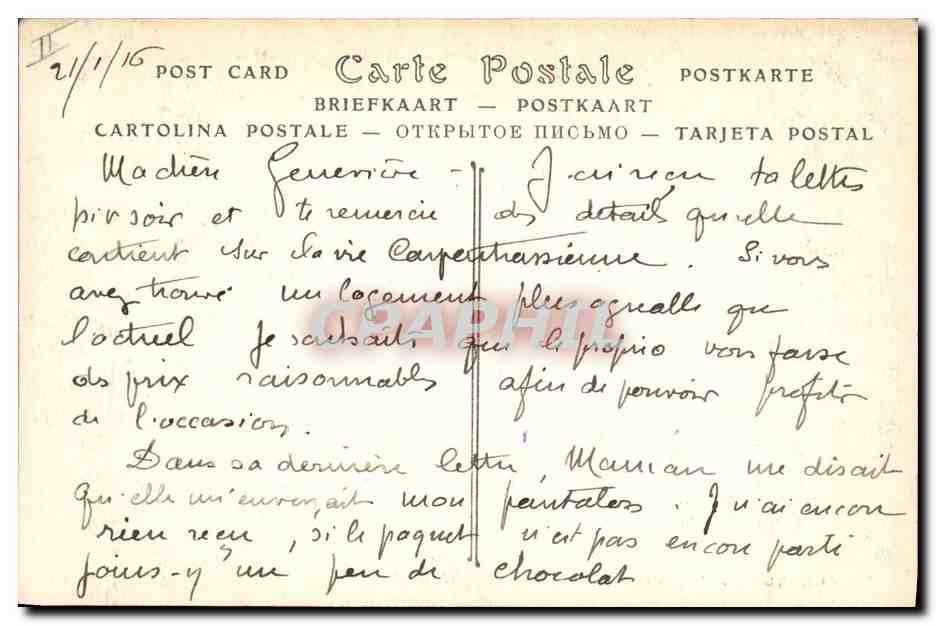 II
21/1/16
POST CARD Carte Postale POSTKARTE
BRIEFKAART — POSTKAART
CARTOLINA POSTALE — ОТКРЫТОЕ ПИСЬМО — TARJETA POSTAL
Ma chère Geneviève - J'ai reçu ta lettre
soir et te remercie des details qu'elle
contient sur la vie Carpentrassienne. Si vous
avez trouvé un logement plus agreable que
l'actuel je souhaite que le proprio vous fasse
des prix raisonnables afin de pouvoir profiter
de l'occasion.
Dans sa dernière lettre, Maman me disait
qu'elle m'envoyait mon pantalon. Je n'ai encore
rien reçu, si le paquet n'est pas encore parti
joins-y un peu de chocolat
CRAPHIL